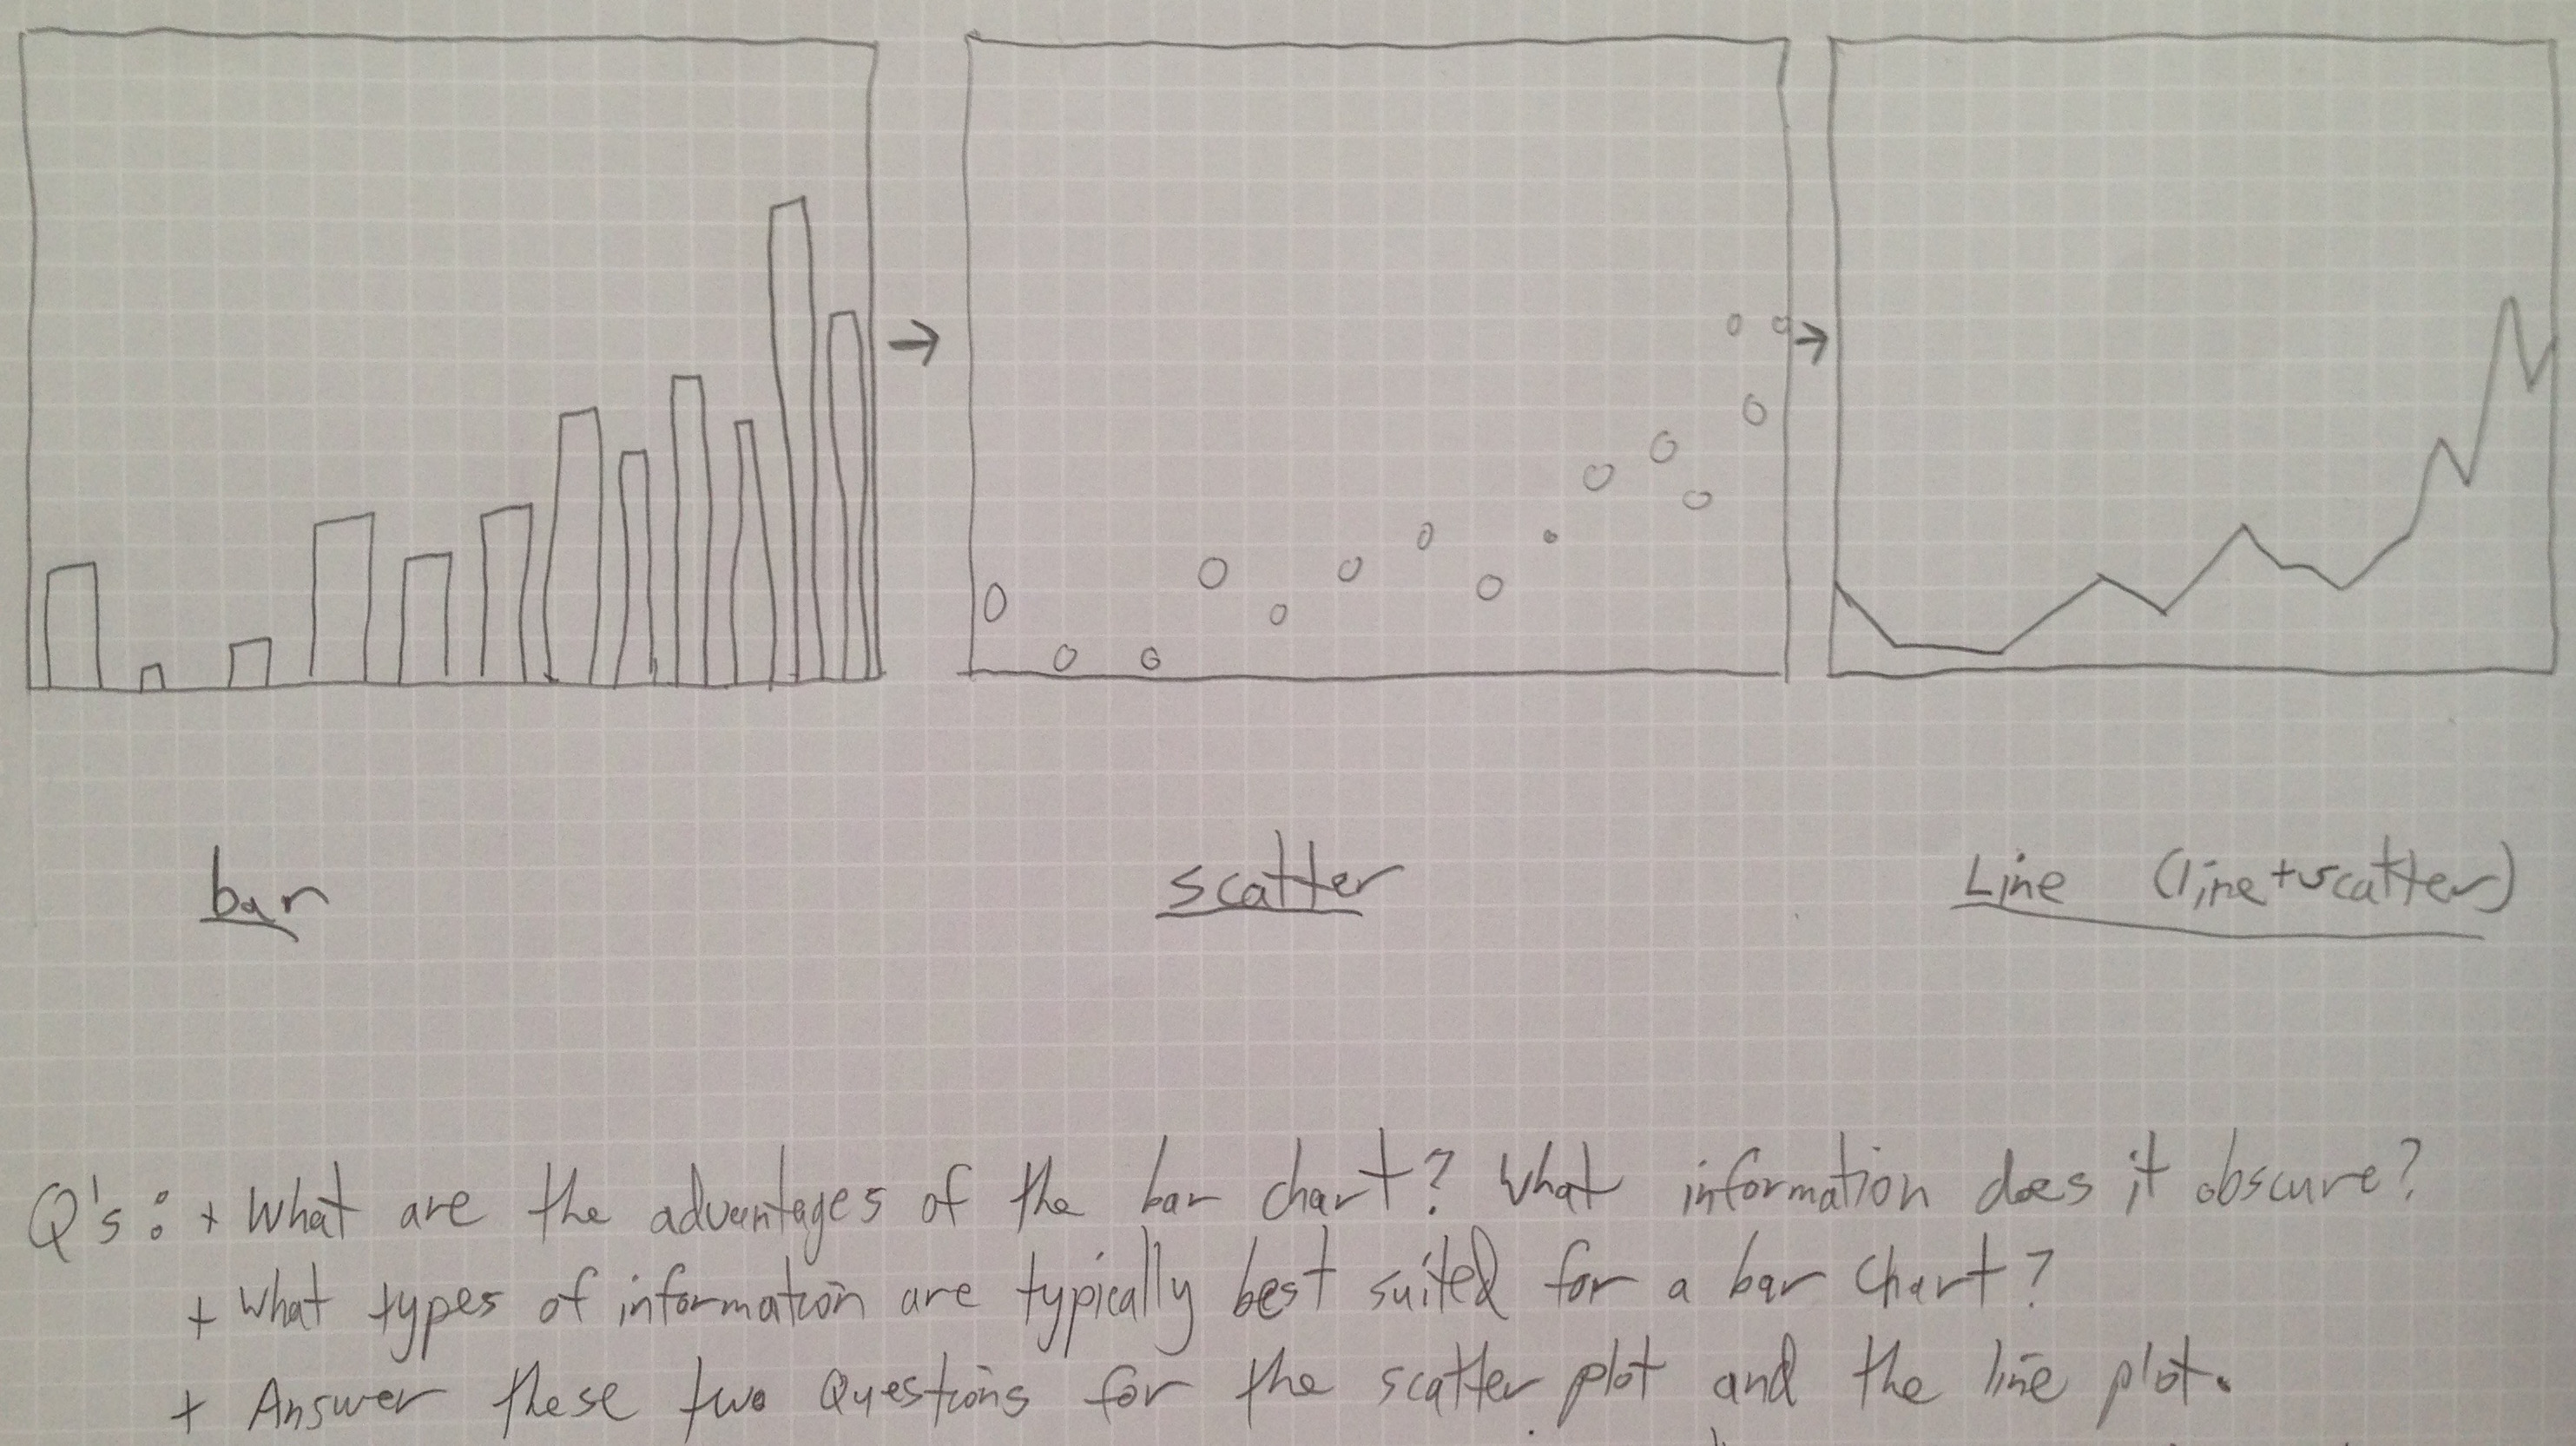 bar
scatter
Line (line+scatter)
Q's: + What are the advantages of the bar chart? What information does it obscure?
+ What types of information are typically best suited for a bar chart?
+ Answer these two Questions for the scatter plot and the line plot.